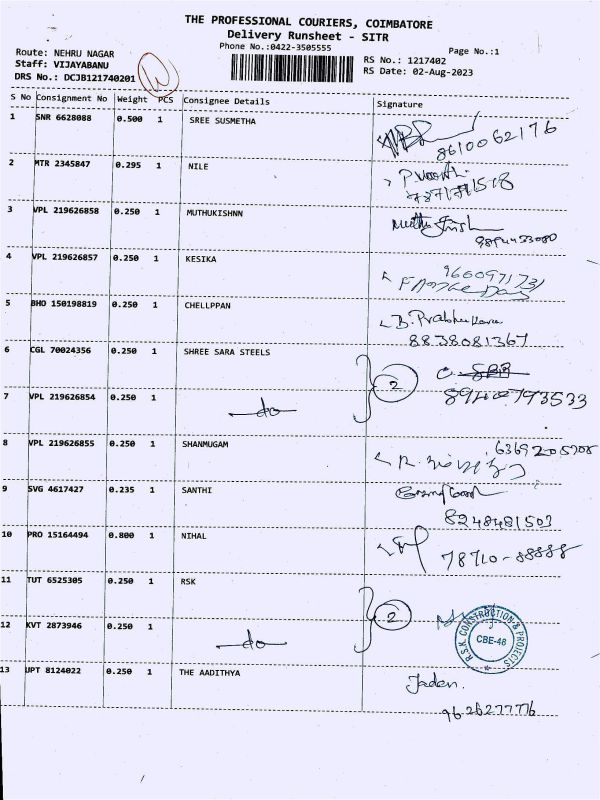 THE PROFESSIONAL COURIERS, COIMBATORE
Delivery Runsheet - SITR
Phone No.:0422-3505555
Page No.:1
Route: NEHRU NAGAR
Staff: VIJAYABANU
DRS No.: DCJB121740201
RS No.: 1217402
RS Date: 02-Aug-2023
S No Consignment No Weight PCS Consignee Details Signature
1 SNR 6628088 0.500 1 SREE SUSMETHA
8610062176
2 MTR 2345847 0.295 1 NILE
3 VPL 219626858 0.250 1 MUTHUKISHNN
4 VPL 219626857 0.250 1 KESIKA
9660971731
5 BHO 150198819 0.250 1 CHELLPPAN
B. Prabhu Kara
8838081367
6 CGL 70024356 0.250 1 SHREE SARA STEELS
2
7 VPL 219626854 0.250 1 do
8940793533
8 VPL 219626855 0.250 1 SHANMUGAM
9 SVG 4617427 0.235 1 SANTHI
8248481503
10 PRO 15164494 0.800 1 NIHAL
78710-88888
11 TUT 6525305 0.250 1 RSK
2
12 KVT 2873946 0.250 1 do
R.S.K. CONSTRUCTION & PROJECTS
CBE-48
13 JPT 8124022 0.250 1 THE AADITHYA
Jaden.
9626277776